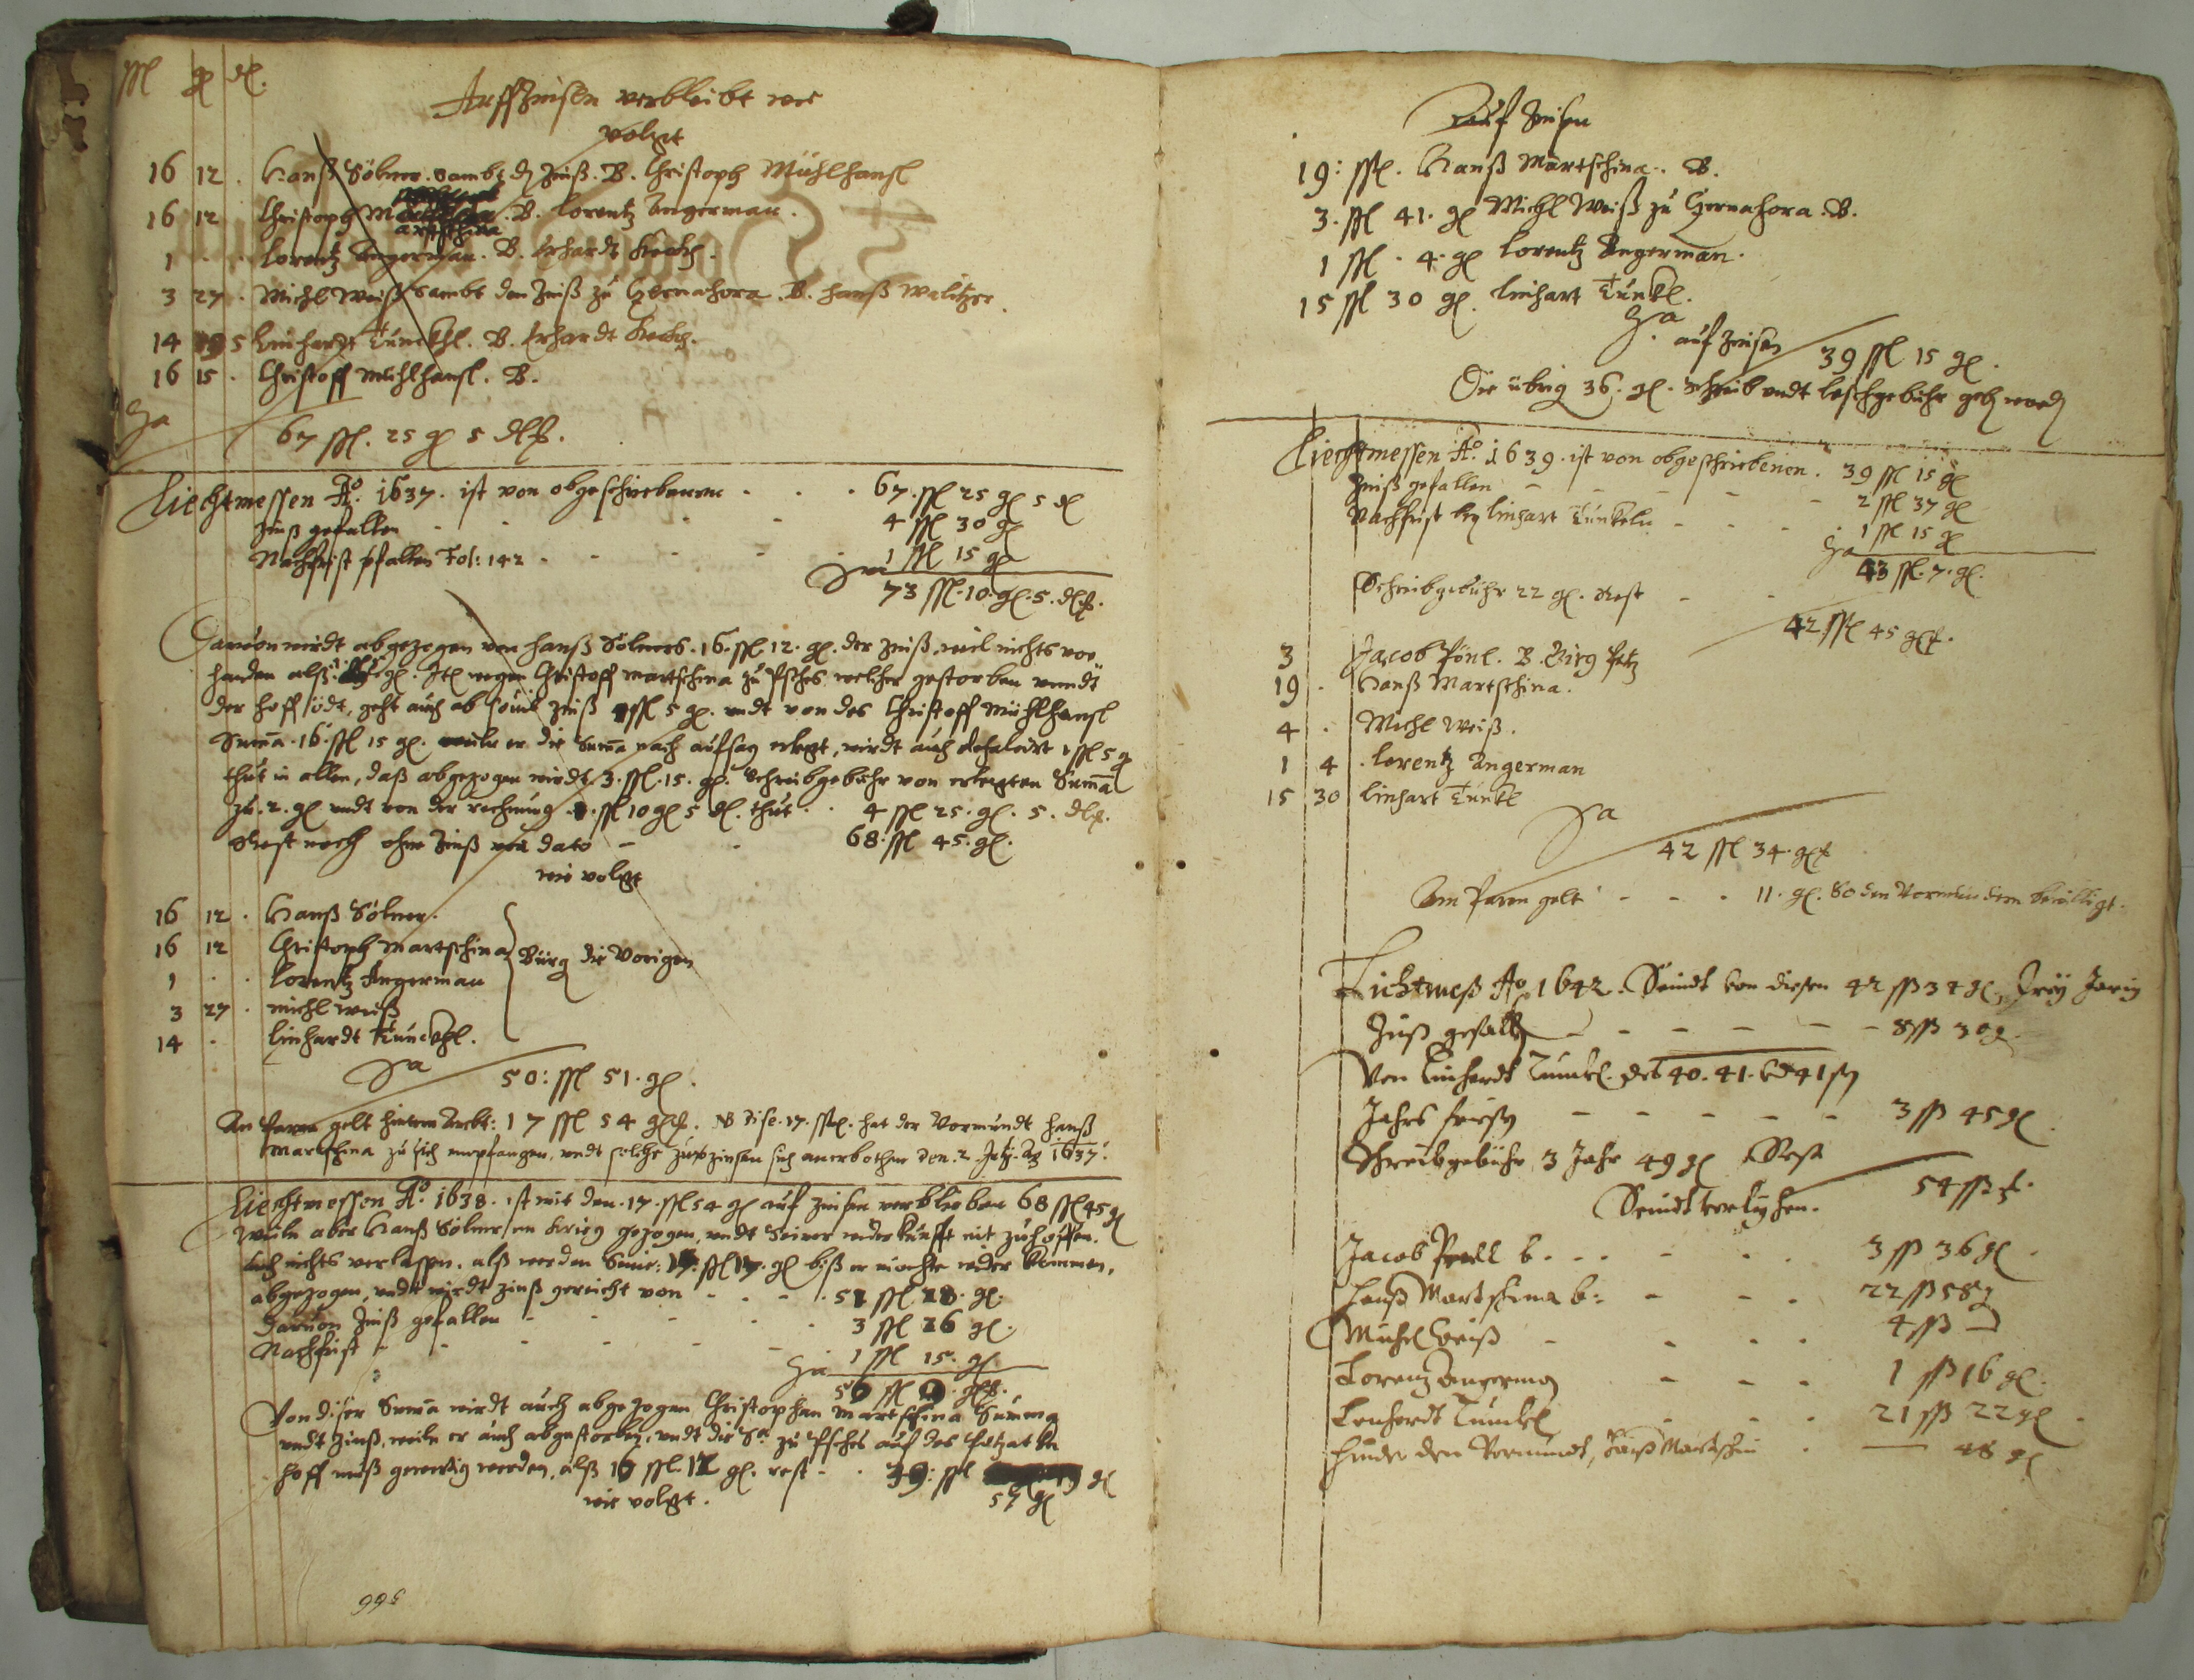 ßl gl dl.
Auff Zinsen verbleibt wie
volgt
16 12 . Hanß Sölner sambt dz Zinß. B. Christoph Mühlhansl
16 12 Christoph Martschina . B. Lorentz Angerman.
1 . . Lorentz Angerman. B. Erhardt
3 27 . Michl Weiß sambt den Zinß zu Czernahora. B. Hanß Walitzer.
14 5 Linhardt Tunckhl. B. Erhardt
16 15 . Christoff Mühlhansl. B.
Sa
67 ßl. 25 gl 5 dl.
Liechtmessen Ao. 1637. ist von obgeschriebenen . . . 67. ßl 25 gl 5 dl
Zinß gefallen - - - - 4 ßl 30 gl
Nachfrist gfallen Fol: 142 - - - - 1 ßl 15 gl
Sa 73 ßl. 10. gl. 5. dl.
Dauon wirdt abgezogen von Hanß Sölners. 16. ßl 12. gl. der Zinß, weil nichts vor
handen alß gl. Itl wegen Christoff Martschina zu welcher gestorben vndt
der Hoff ödt, geht auch ab souil Zinß 1 ßl 5 gl. vndt von des Christoff Mühlhansl
Suma. 16. ßl 15 gl. weiln er die Suma nach aufsag erlegt, wirdt auch defalcirt 1 ßl 5 gl
thut in allen, daß abgezogen wirdt 3. ßl. 15. gl. Schreibgebühr von erlegten Suma
zu. 2. gl vndt von der rechnung . ßl 10 gl 5 dl. thut . . 4 ßl 25. gl. 5. dl.
Rest noch ohne Zinß von dato - - 68. ßl 45. gl.
wie volgt
16 12 . Hanß Sölner.
16 12 Christoph Martschina
1 . . Lorentz Angerman
3 27 . Michl Weiß
14 . Linhardt Tunckhl.
Bürg die Vorigen
Sa 50: ßl 51. gl.
An paren gelt hinterm Ambt: 17 ßl 54 gl. NB dise. 17. ßl. hat der Vormundt Hanß
Martschina zu sich empfangen, vndt solche zuuerzinsen sich anerbothen den. 2. Ao 1637.
Liechtmessen Ao. 1638. ist mit den. 17. ßl 54 gl auf Zinsen verblieben 68 ßl 45 gl
Weiln aber Hanß Sölner im Krieg gezogen, vndt Seiner widerkunfft nit zuhoffen.
auch nichts verlassen, alß werden Seine: ßl gl biß er mochte wider kommen,
abgezogen, vndt wirdt Zinß gereicht von - - - . 51 ßl 28. gl.
Dauon Zinß gefallen - - - - 3 ßl 26 gl.
Nachfrist - - - - 1 ßl 15. gl
Sa 56 ßl 9. gl.
Von diser Suma wirdt auch abgezogen Christophen Martschina Summa
vndt Zinß, weiln er auch abgestorben, vndt die Sa. zu auf des
Hoff muß gewertig werden, alß 16 ßl. 12 gl. rest - . 39: ßl gl
wie volgt. 57 gl
566
Auf Zinsen
19: ßl. Hanß Martschina. B.
3. ßl 41. gl Michl Weiß zu Czernahora. B.
1 ßl. 4. gl Lorentz Angerman.
15 ßl 30 gl. Linhart Tunkl.
Sa
auf Zinsen 39 ßl 15 gl.
Die übrig 36. gl. Schreib vndt leschgebühr geben worden
Liechtmessen Ao. 1639. ist von obgeschriebenen. 39 ßl 15 gl
Zinß gefallen - - - - 2 ßl 37 gl
Nachfrist bey Linhart Tunkeln - - - 1 ßl 15 gl
Sa 43 ßl. 7. gl.
Schreibgebühr 22 gl. Rest - - 42 ßl 45 gl.
3 Jacob Pönl. B.
19 . Hanß Martschina.
4 . Michl Weiß.
1 4 . Lorentz Angerman
15 30 Linhart Tunkl
Sa
42 ßl 34. gl
Am paren gelt - - - 11. gl. So den Vormündern bewilligt.
Lichtmeß Ao 1642. Seindt von diesen 42 ßß 34 gl, Jarig
Zinß gefallen - - - - - 8 ßß 30 g
Von Linhardt Tunkel. des 40. 41. vndt 41sten
Jahrs fristen - - - - - 3 ßß 45 gl.
Schreibgebühr 3 Jahr 49 gl Rest
54 ßß
Seindt verlyhen.
Jacob b. . . - . . 3 ßß 36 gl.
Hanß Martschina b: - - . 22 ßß 58 g
Michel Weiß - - . . 4 ßß -
Lorenz Angerman - - . 1 ßß 16 gl.
Lenhardt Tunckel . - . 21 ßß 22 gl.
Hinder den Vormundt, Hanß Martschin . - 48 gl